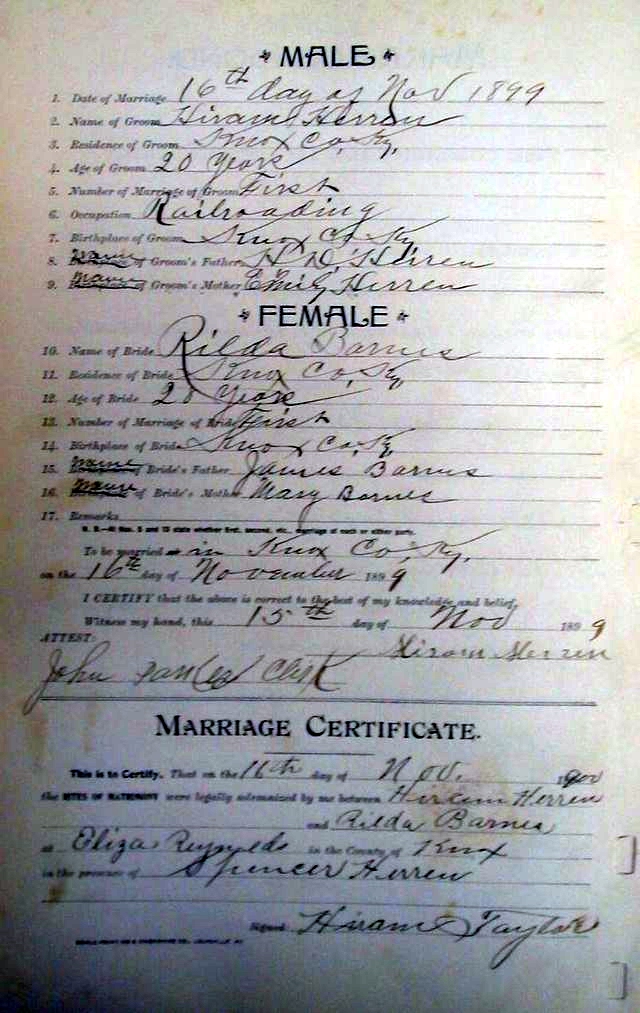 MALE
1. Date of Marriage 16th day of Nov 1899
2. Name of Groom Hiram Herren
3. Residence of Groom Knox Co, Ky,
4. Age of Groom 20 years
5. Number of Marriage of Groom First
6. Occupation Railroading
7. Birthplace of Groom Knox Co Ky
8. Name of Groom's Father H. D. Herren
9. Name of Groom's Mother Emily Herren
FEMALE
10. Name of Bride Rilda Barnes
11. Residence of Bride Knox Co, Ky,
12. Age of Bride 20 years
13. Number of Marriage of Bride First
14. Birthplace of Bride Knox Co, Ky
15. Name of Bride's Father James Barnes
16. Name of Bride's Mother Mary Barnes
17. Remarks
N. B.—At Nos. 5 and 13 state whether first, second, etc., marriage of each or either party.
To be married in Knox Co, Ky,
on the 16th day of November 1899
I CERTIFY that the above is correct to the best of my knowledge and belief.
Witness my hand, this 15th day of Nov 1899
ATTEST: Hiram Herren
John Clerk
MARRIAGE CERTIFICATE.
This is to Certify, That on the 16th day of Nov. 1900
the RITES OF MATRIMONY were legally solemnized by me between Hiram Herren
and Rilda Barnes
at Eliza Reynolds in the County of Knox
in the presence of Spencer Herren
Signed Hiram Taylor